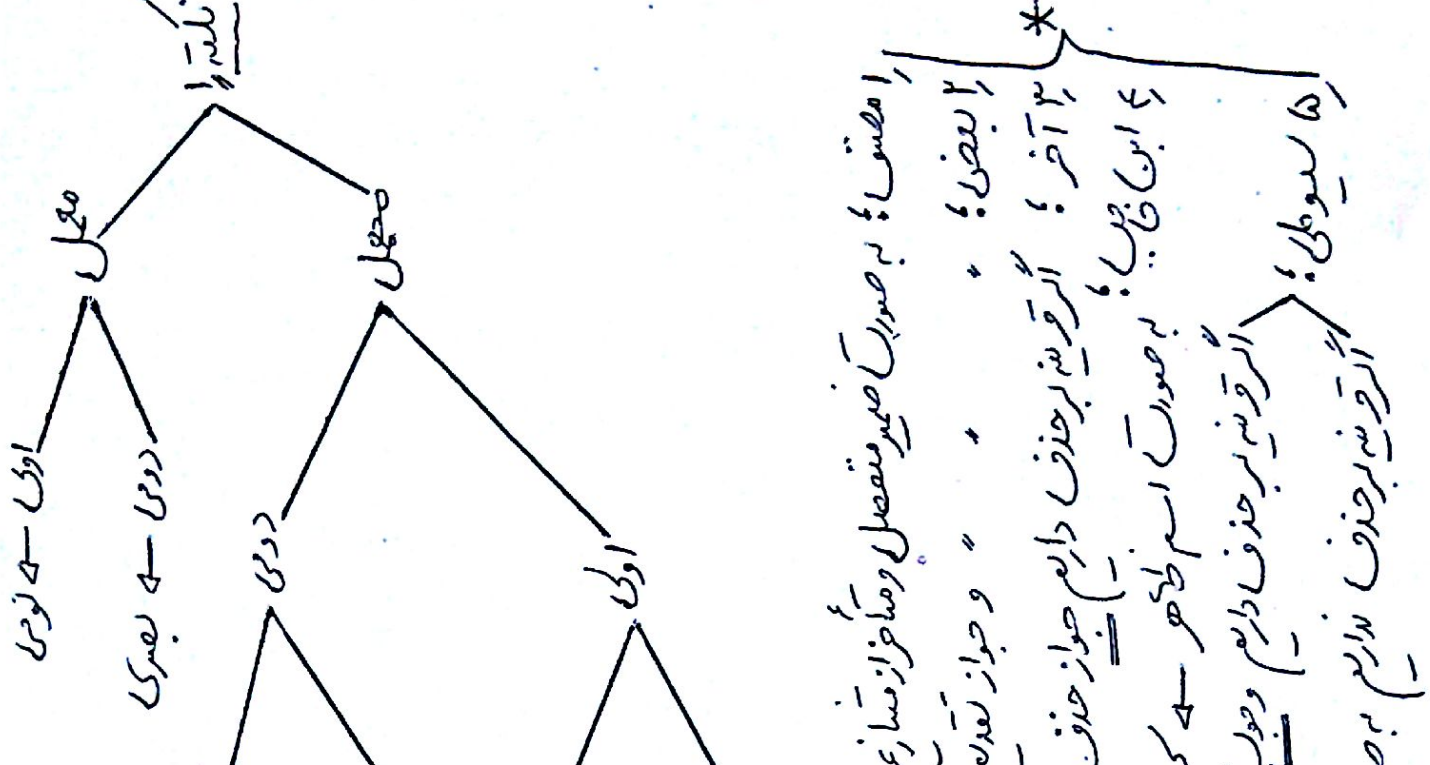 نکته ۱
معمل
مهمل
اولی ← نومی
دومی ← بصری
دومی
اولی
*
۱ مصنف؛ به صورت ضمیر منفصل و متأخر از متنازع
۲ بعضی؛ 〃 〃 〃 و جواز تقدی
۳ آخر؛ اگر قرینه بر حذف داریم جواز حذف
۴ ابن حاجب؛ به صورت اسم ظاهر ←
۵ سیوطی؛
اگر قرینه بر حذف داریم وجوب
اگر قرینه بر حذف نداریم به ص